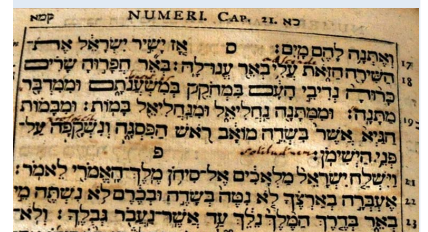 קמא NUMERI. Cap. 21. כא
וְאֶתְּנָה לָהֶם מָיִם: ס אָז יָשִׁיר יִשְׂרָאֵל אֶת־ 17
הַשִּׁירָה הַזֹּאת עֲלִי בְאֵר עֱנוּ־לָהּ: בְּאֵר חֲפָרוּהָ שָׂרִים 18
כָּרוּהָ נְדִיבֵי הָעָם בִּמְחֹקֵק בְּמִשְׁעֲנֹתָם וּמִמִּדְבָּר
מַתָּנָה: וּמִמַּתָּנָה נַחֲלִיאֵל וּמִנַּחֲלִיאֵל בָּמוֹת: וּמִבָּמוֹת 19
הַגַּיְא אֲשֶׁר בִּשְׂדֵה מוֹאָב רֹאשׁ הַפִּסְגָּה וְנִשְׁקָפָה עַל־
פְּנֵי הַיְשִׁימֹן: פ
וַיִּשְׁלַח יִשְׂרָאֵל מַלְאָכִים אֶל־סִיחֹן מֶלֶךְ־הָאֱמֹרִי לֵאמֹר: 21
אֶעְבְּרָה בְאַרְצֶךָ לֹא נִטֶּה בְּשָׂדֶה וּבְכֶרֶם לֹא נִשְׁתֶּה מֵי 22
בְאֵר בְּדֶרֶךְ הַמֶּלֶךְ נֵלֵךְ עַד אֲשֶׁר־נַעֲבֹר גְּבֻלֶךָ: וְלֹא־ 23